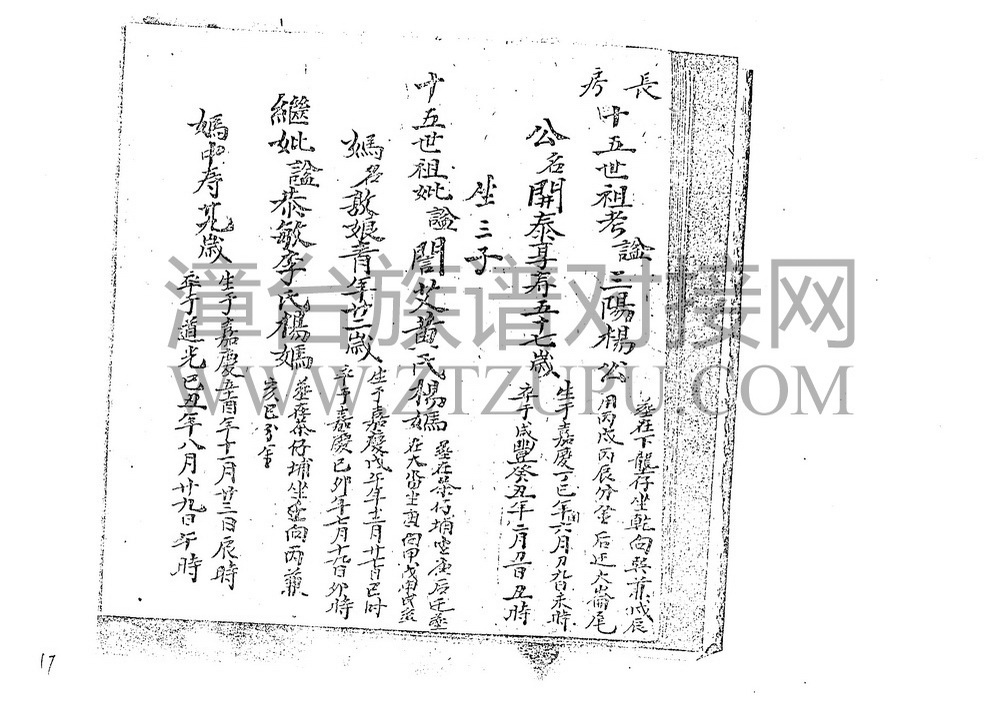 長房
十五世祖考諡三陽楊公
葬在下龔仔坐乾向巽兼戌辰
用丙戌丙辰分金后迁大崙尾
公名開泰享寿五十七歲
生于嘉慶丁巳年六月初九日未時
卒于咸豐癸丑年二月日丑時
坐三子
十五世祖妣諡誾艾黄氏楊媽
葬在茶仔埔后迁葬
在大坐酉向甲
媽名敦娘青年廿二歲
生于嘉慶戊午年十二月廿七日巳时
卒于嘉慶己卯年七月十九日卯時
繼妣諡恭敏李氏楊媽
葬在茶仔埔坐壬向丙兼
亥巳分金
媽中寿九歲
生于嘉慶辛酉年十一月廿三日辰時
卒于道光己丑年八月廿九日午時
17
漳台族谱对接网
WWW.ZTZUPU.COM